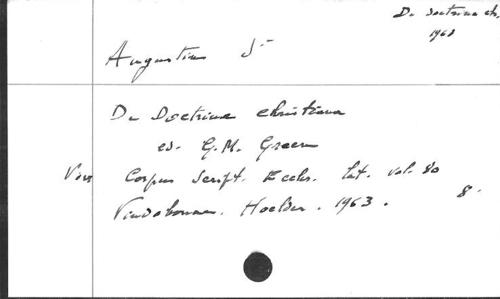 De doctrina ch.
1963
Augustine St
De Doctrina Christiana
ed. G.M. Green
Corpus Script. Eccles. Lat. vol. 80
Vindobonae. Hoelder. 1963. 8.